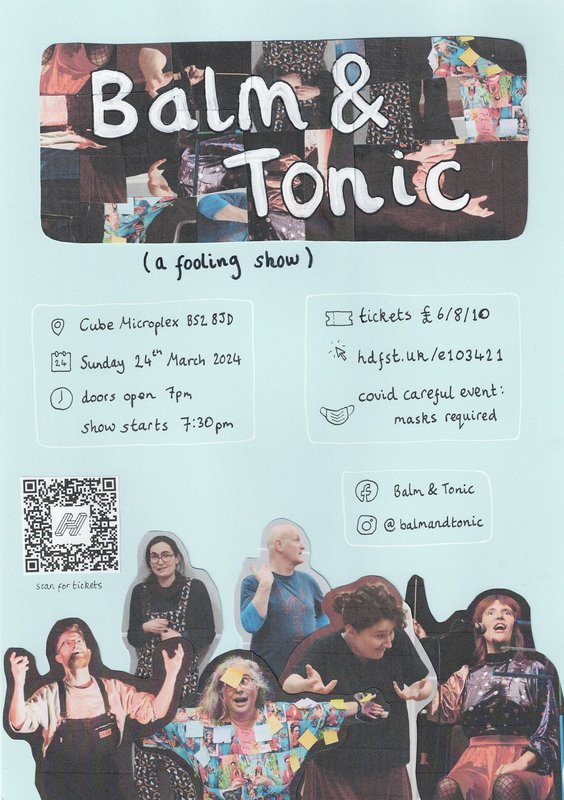 Balm &
Tonic
(a fooling show)
Cube Microplex BS2 8JD
24
Sunday 24th March 2024
doors open 7pm
show starts 7:30pm
tickets £6/8/10
hdfst.uk/e103421
covid careful event:
masks required
Balm & Tonic
@balmandtonic
H
scan for tickets